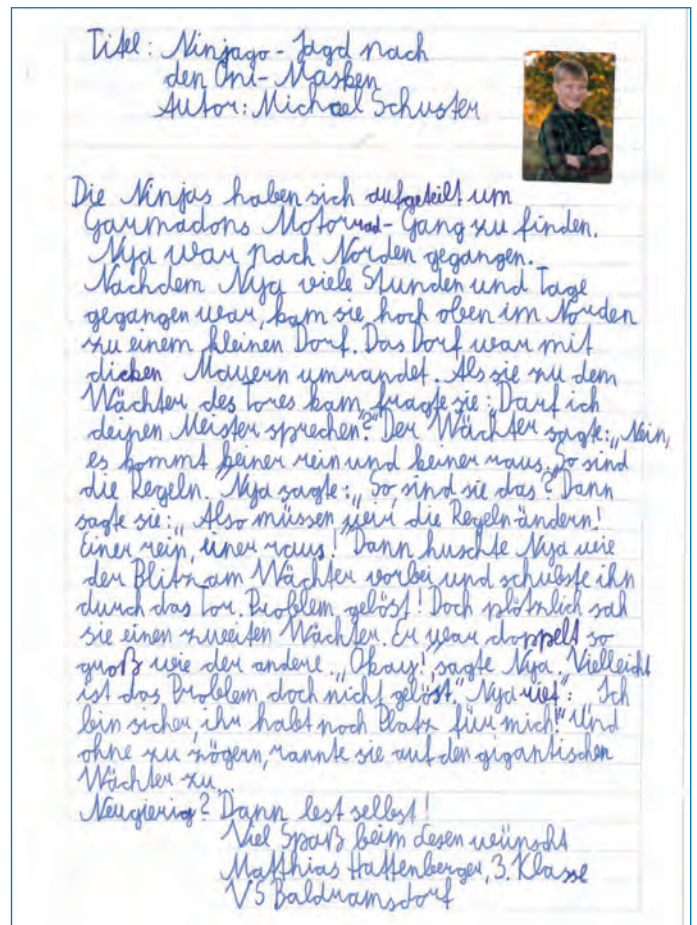 Titel: Ninjago - Jagd nach
den Oni-Masken
Autor: Michael Schuster
Die Ninjas haben sich aufgeteilt um
Garmadons Motorrad-Gang zu finden.
Nya war nach Norden gegangen.
Nachdem Nya viele Stunden und Tage
gegangen war, kam sie hoch oben im Norden
zu einem kleinen Dorf. Das Dorf war mit
dicken Mauern umrandet. Als sie zu dem
Wächter des Tores kam, fragte sie: „Darf ich
deinen Meister sprechen?" Der Wächter sagte: „Nein,
es kommt keiner rein und keiner raus. So sind
die Regeln." Nya sagte: „So, sind sie das? Dann
sagte sie: „Also müssen wir die Regeln ändern!
Einer rein, einer raus!" Dann huschte Nya wie
der Blitz am Wächter vorbei und schubste ihn
durch das Tor. Problem gelöst! Doch plötzlich sah
sie einen zweiten Wächter. Er war doppelt so
groß wie der andere. „Okay!, sagte Nya. Vielleicht
ist das Problem doch nicht gelöst." Nya rief: „Ich
bin sicher, ihr habt noch Platz für mich!" Und
ohne zu zögern, rannte sie auf den gigantischen
Wächter zu...
Neugierig? Dann lest selbst!
Viel Spaß beim Lesen wünscht
Matthias Hattenberger, 3. Klasse
VS Baldramsdorf